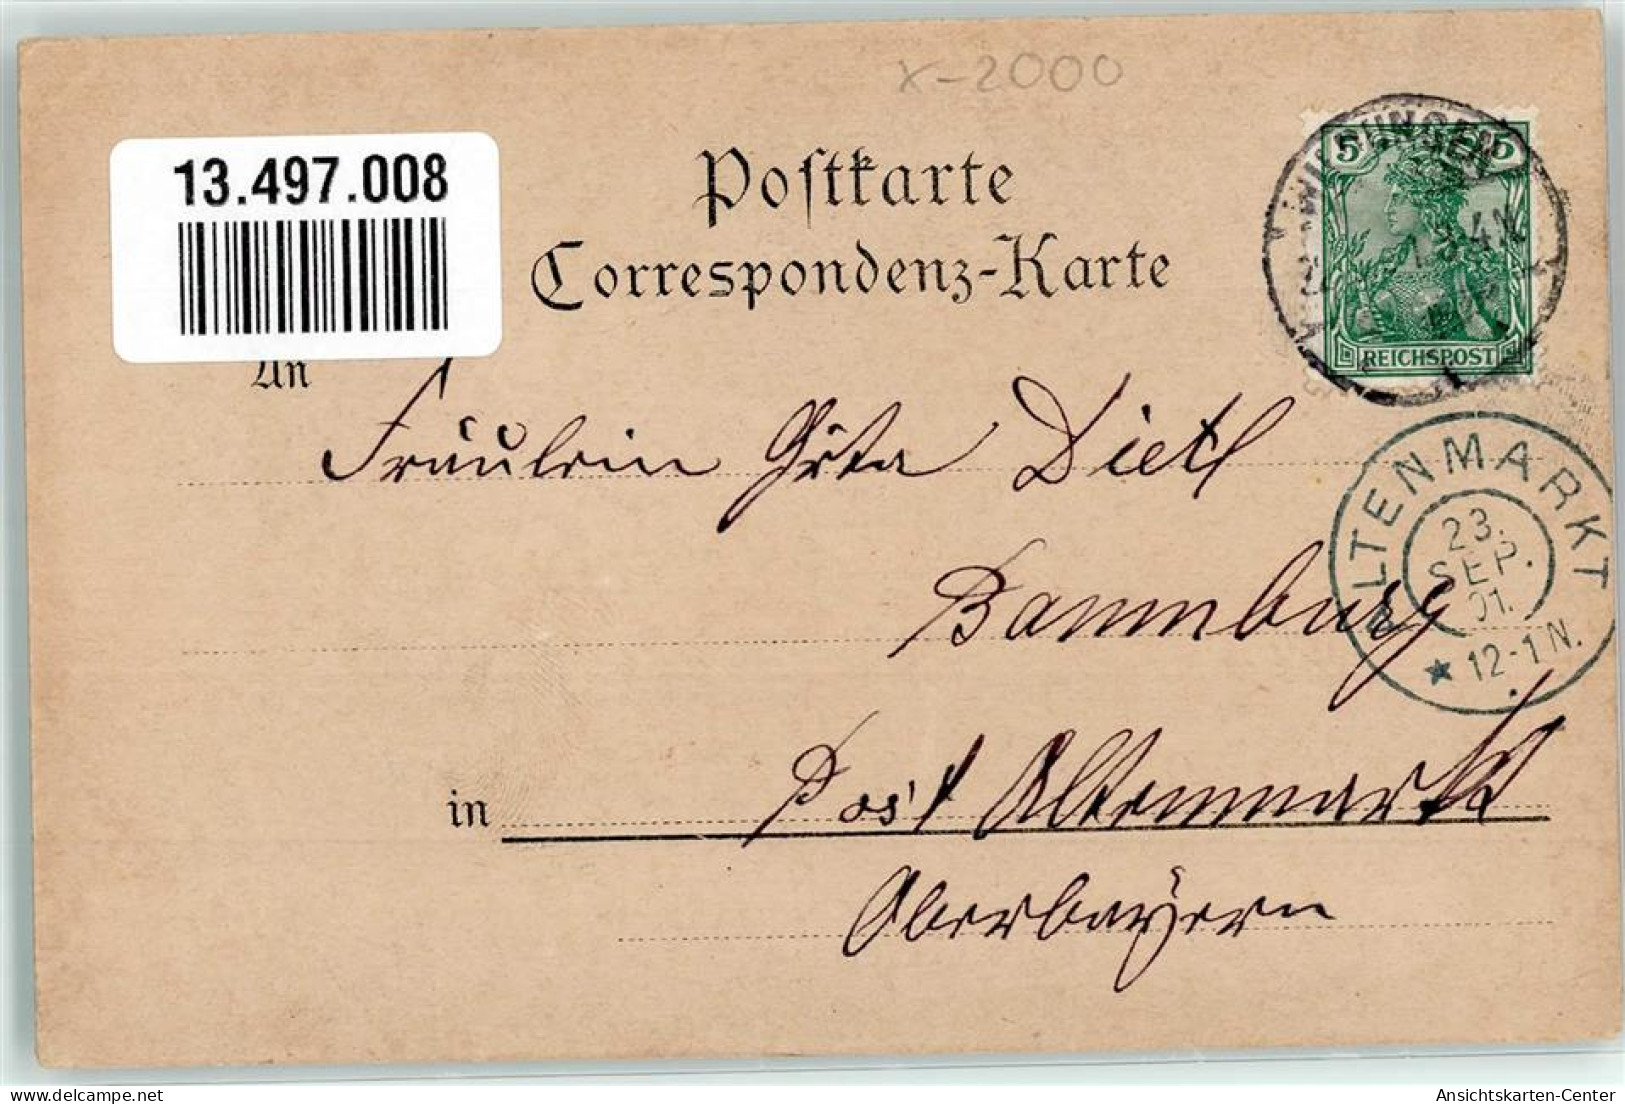 x-2000
13.497.008
Postkarte
Correspondenz-Karte
5 5
REICHSPOST
WILDUNGEN
An
Fräulein Greta Dietl
ALTENMARKT
23.
SEP.
01.
12-1 N.
Baumburg
in Post Altenmarkt
Oberbayern
delcampe.net
Ansichtskarten-Center